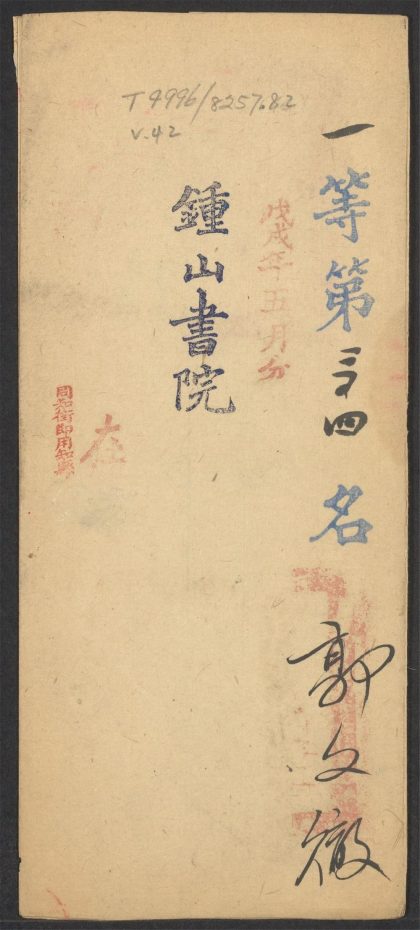 T 4996/8257.82
v.42
一等第三十四名
郭文徹
戊戌年五月分
鍾山書院
同知銜即用知縣